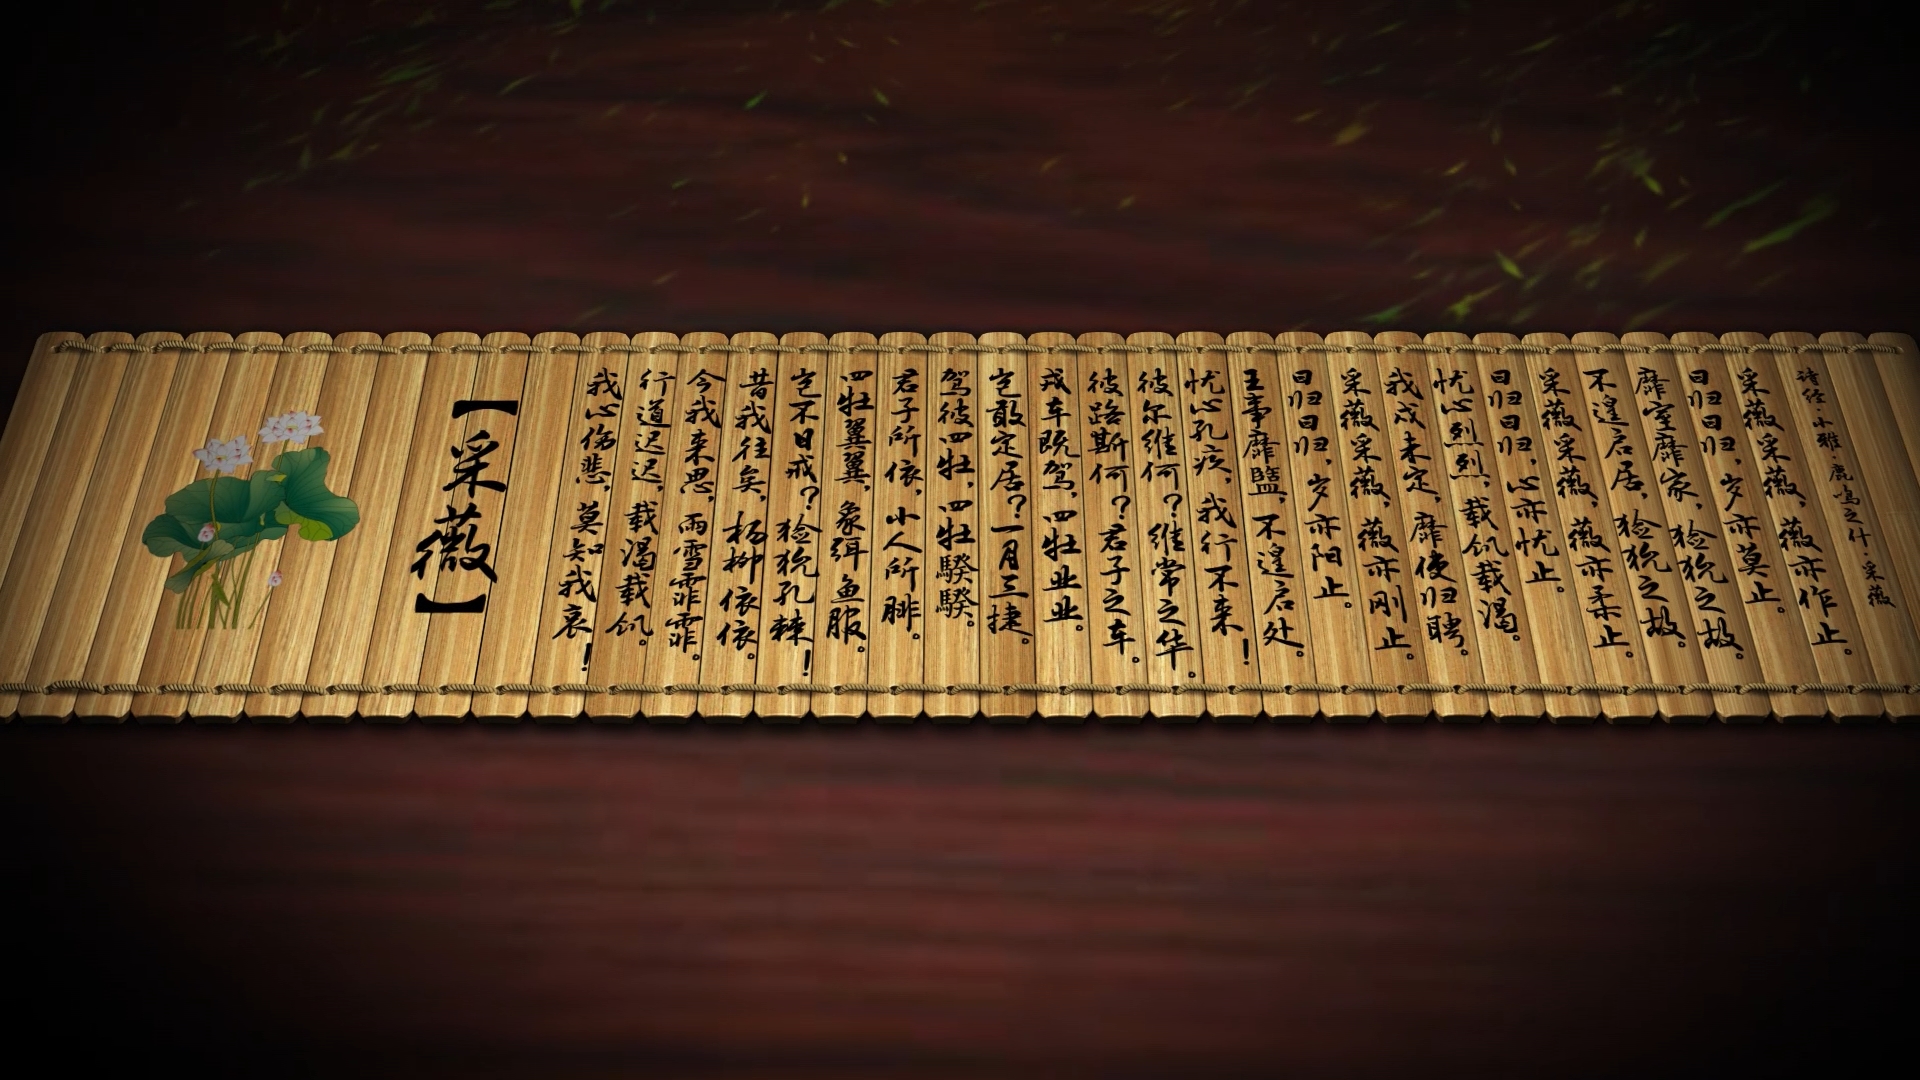 诗经·小雅·鹿鸣之什·采薇
采薇采薇,薇亦作止。
曰归曰归,岁亦莫止。
靡室靡家,猃狁之故。
不遑启居,猃狁之故。
采薇采薇,薇亦柔止。
曰归曰归,心亦忧止。
忧心烈烈,载饥载渴。
我戍未定,靡使归聘。
采薇采薇,薇亦刚止。
曰归曰归,岁亦阳止。
王事靡盬,不遑启处。
忧心孔疚,我行不来!
彼尔维何?维常之华。
彼路斯何?君子之车。
戎车既驾,四牡业业。
岂敢定居?一月三捷。
驾彼四牡,四牡騤騤。
君子所依,小人所腓。
四牡翼翼,象弭鱼服。
岂不日戒?猃狁孔棘!
昔我往矣,杨柳依依。
今我来思,雨雪霏霏。
行道迟迟,载渴载饥。
我心伤悲,莫知我哀!
【采薇】